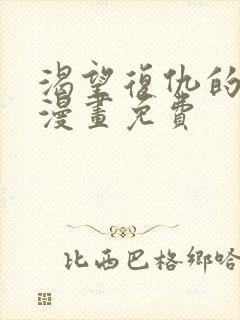 渴望復仇的
漫畫免費
比西巴格鄉哈